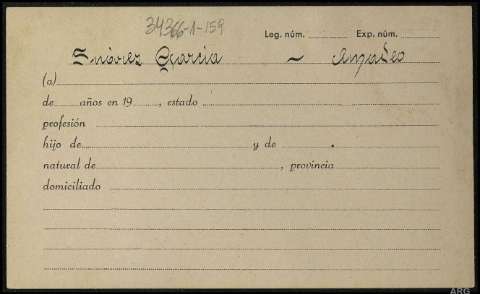 34366-1-159
Leg. núm. Exp. núm.
Suárez García — Amadeo
(a)
de años en 19 , estado
profesión
hijo de y de .
natural de , provincia
domiciliado
ARG